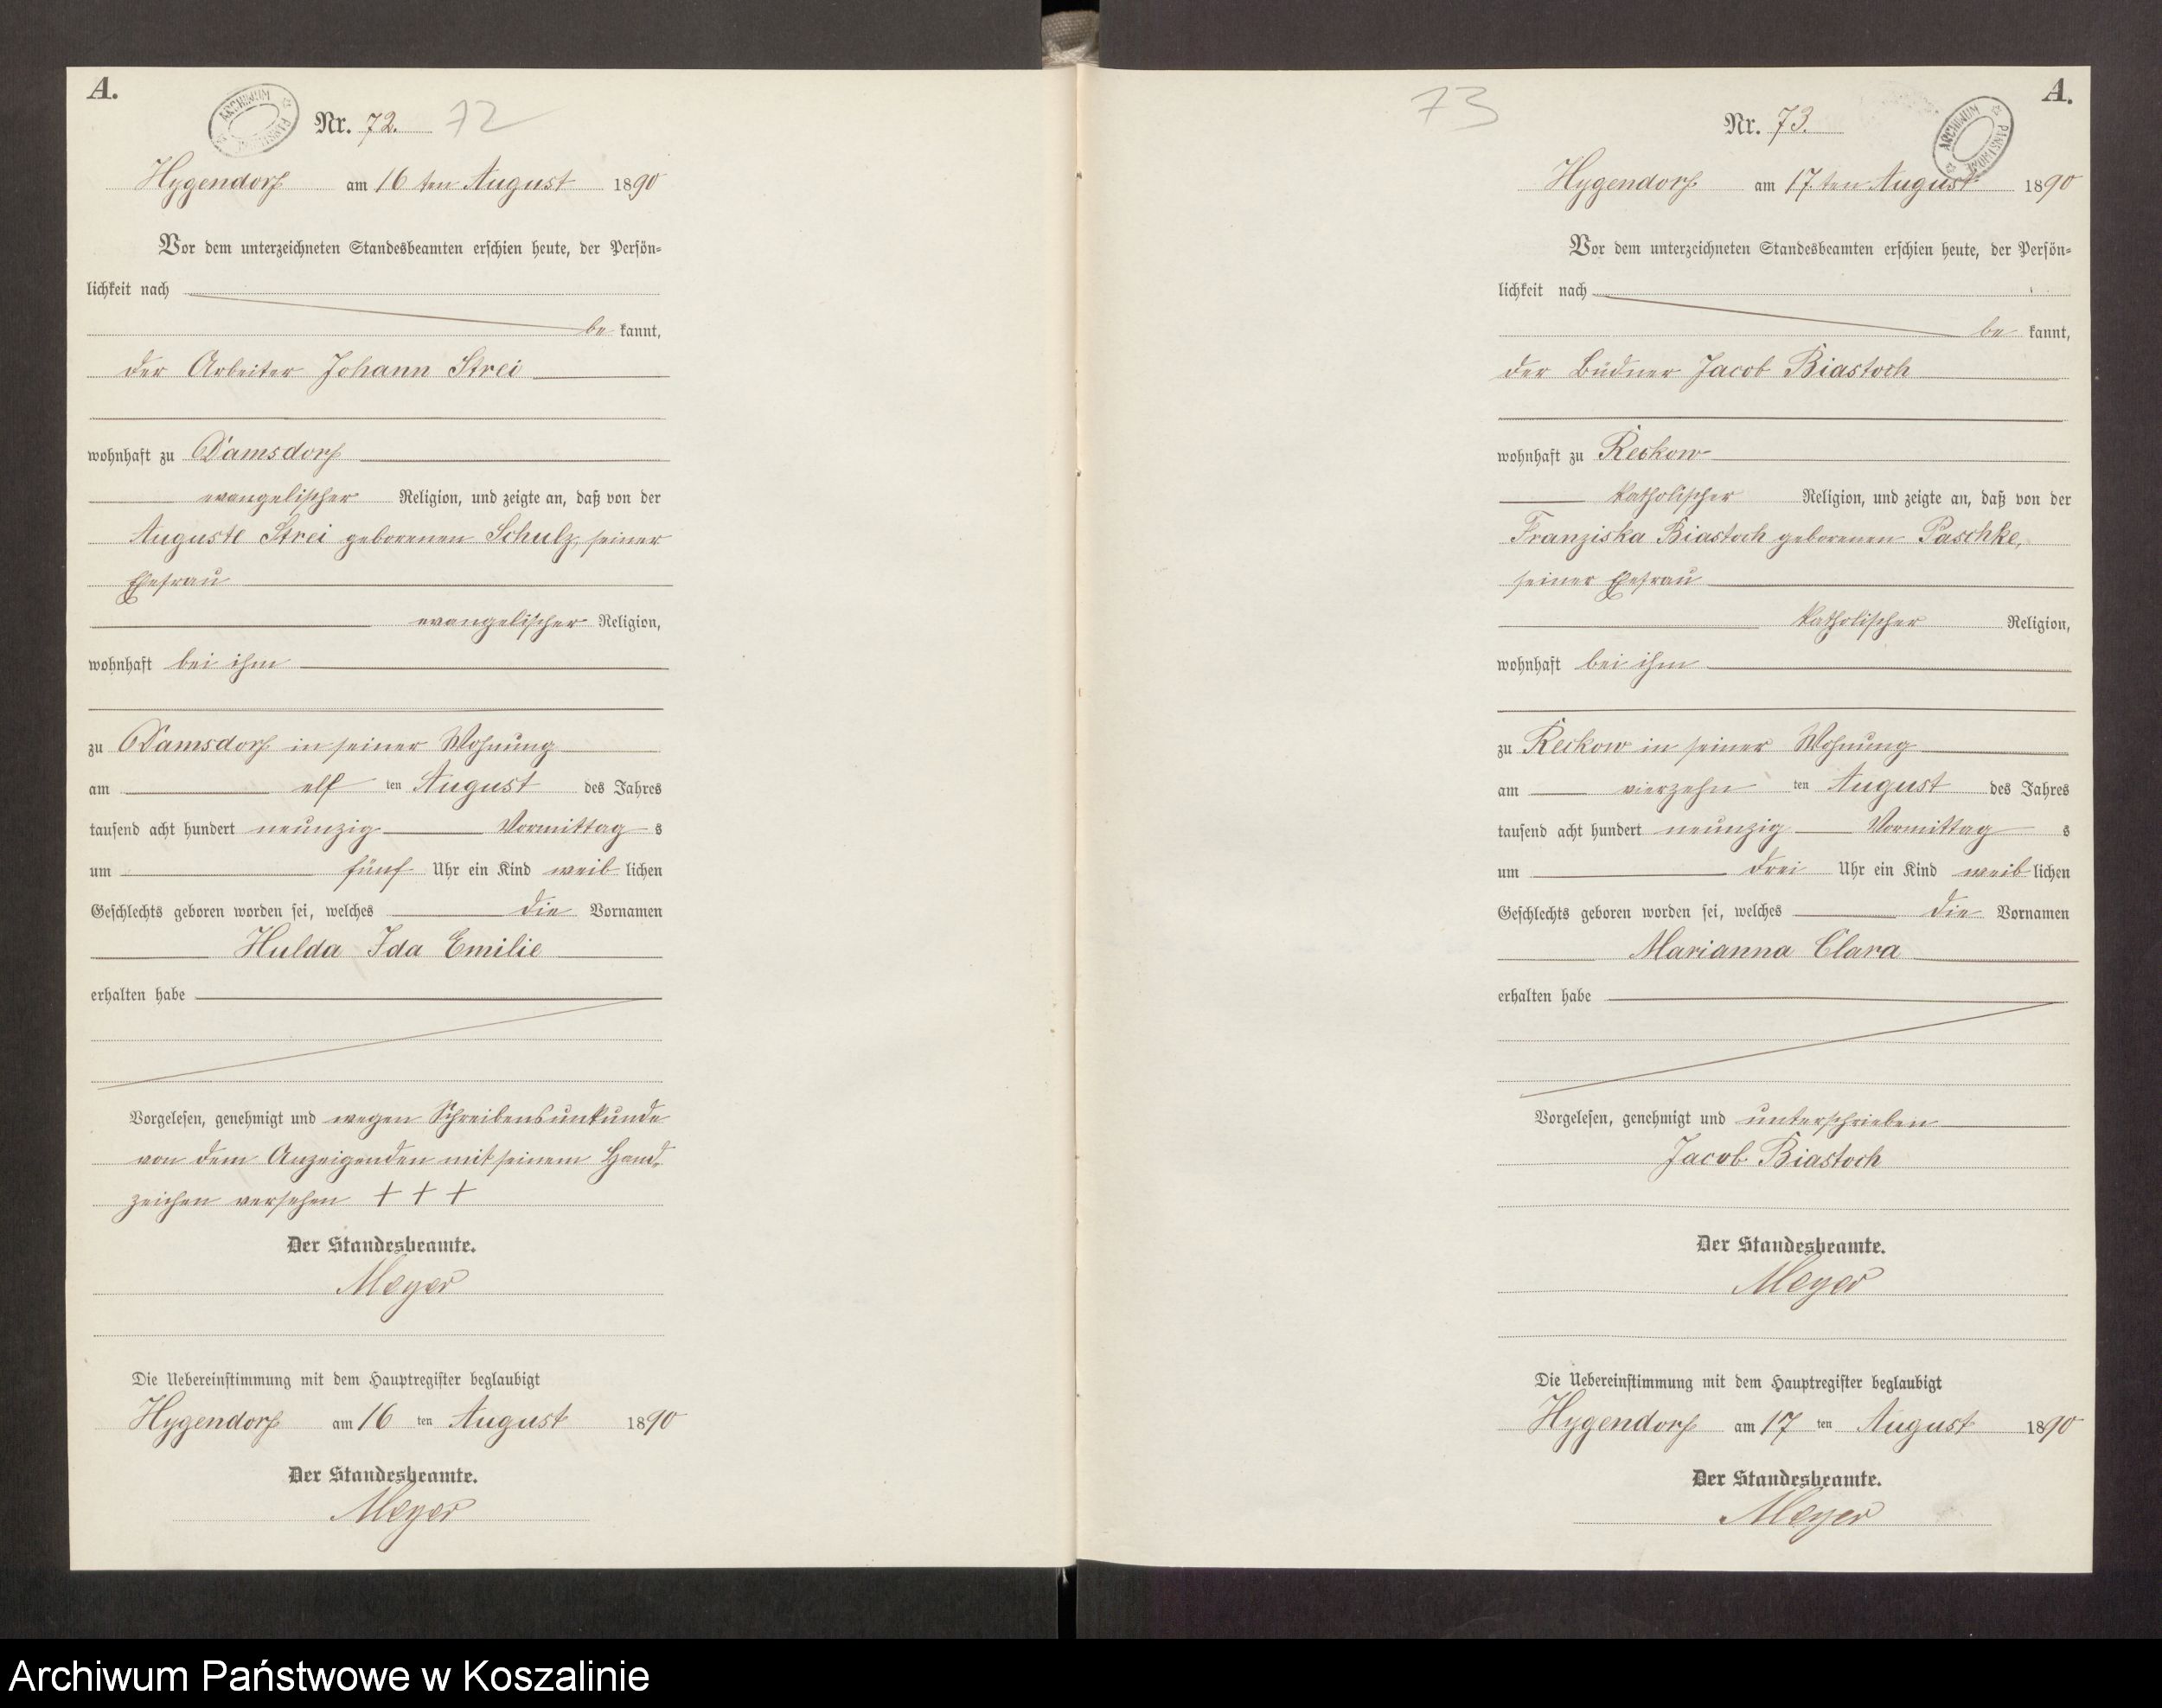 A.
ARCHIWUM PAŃSTWOWE
Nr. 72. 72
Hygendorf am 16ten August 1890
Vor dem unterzeichneten Standesbeamten erschien heute, der Persön-
lichkeit nach
be kannt,
der Arbeiter Johann Strei
wohnhaft zu Damsdorf
evangelischer Religion, und zeigte an, daß von der
Auguste Strei geborenen Schulz, seiner
Ehefrau
evangelischer Religion,
wohnhaft bei ihm
zu Damsdorf in seiner Wohnung
am elf ten August des Jahres
tausend acht hundert neunzig Vormittag s
um fünf Uhr ein Kind weib lichen
Geschlechts geboren worden sei, welches die Vornamen
Hulda Ida Emilie
erhalten habe
Vorgelesen, genehmigt und wegen Schreibensunkunde
von dem Anzeigenden mit seinem Hand-
zeichen versehen + + +
Der Standesbeamte.
Meyer
Die Uebereinstimmung mit dem Hauptregister beglaubigt
Hygendorf am 16 ten August 1890
Der Standesbeamte.
Meyer
A.
ARCHIWUM PAŃSTWOWE
73 Nr. 73.
Hygendorf am 17.ten August 1890
Vor dem unterzeichneten Standesbeamten erschien heute, der Persön-
lichkeit nach
be kannt,
der Büdner Jacob Biastoch
wohnhaft zu Reckow
katholischer Religion, und zeigte an, daß von der
Franziska Biastoch geborenen Paschke,
seiner Ehefrau
katholischer Religion,
wohnhaft bei ihm
zu Reckow in seiner Wohnung
am vierzehn ten August des Jahres
tausend acht hundert neunzig Vormittag s
um drei Uhr ein Kind weib lichen
Geschlechts geboren worden sei, welches die Vornamen
Marianna Clara
erhalten habe
Vorgelesen, genehmigt und unterschrieben
Jacob Biastoch
Der Standesbeamte.
Meyer
Die Uebereinstimmung mit dem Hauptregister beglaubigt
Hygendorf am 17 ten August 1890
Der Standesbeamte.
Meyer
Archiwum Państwowe w Koszalinie